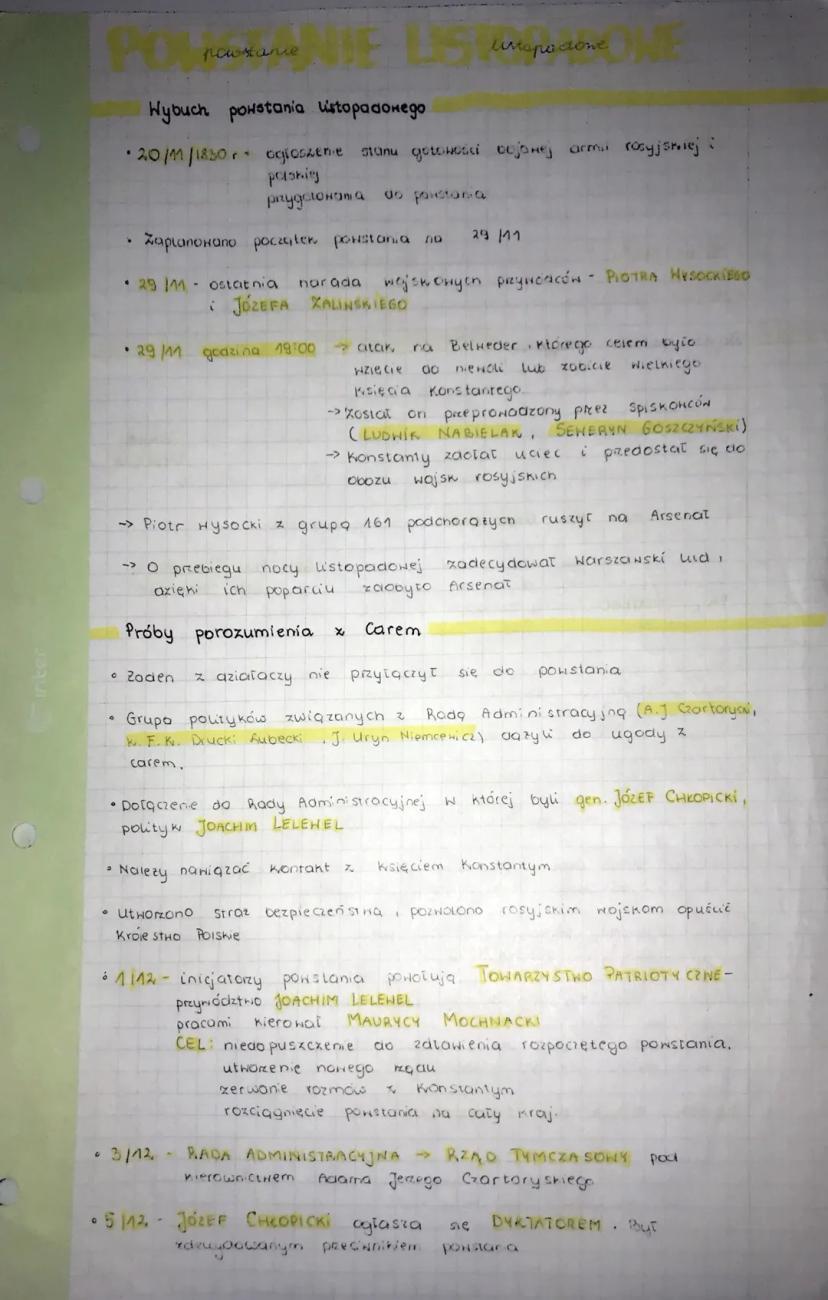 POWSTANIE LISTOPADOWE
powstanie listopadowe
Wybuch powstania listopadowego
• 20/11/1830 r - ogłoszenie stanu gotowości bojowej armii rosyjskiej i
polskiej
przygotowania do powstania
• Zaplanowano początek powstania na 29/11
• 29/11 - ostatnia narada wojskowych przywódców - PIOTRA WYSOCKIEGO
i JÓZEFA ZALIŃSKIEGO
• 29/11 godzina 19:00 → atak na Belweder, którego celem było
wzięcie do niewoli lub zabicie wielkiego
księcia Konstantego.
→ Został on przeprowadzony przez spiskowców
(LUDWIK NABIELAK, SEWERYN GOSZCZYŃSKI)
→ Konstanty zdołał uciec i przedostał się do
obozu wojsk rosyjskich
→ Piotr Wysocki z grupą 161 podchorążych ruszył na Arsenał
→ O przebiegu nocy listopadowej zadecydował Warszawski lud,
dzięki ich poparciu zdobyto Arsenał
Próby porozumienia z Carem
• Żaden z działaczy nie przyłączył się do powstania
• Grupa polityków związanych z Radą Administracyjną (A.J Czartoryski,
K. F. K. Drucki Lubecki, J. Uryn Niemcewicz) dążyli do ugody z
carem.
• Dołączenie do Rady Administracyjnej w której byli gen. JÓZEF CHŁOPICKI,
polityk JOACHIM LELEWEL
• Należy nawiązać kontakt z księciem Konstantym
• Utworzono straż bezpieczeństwa, pozwolono rosyjskim wojskom opuścić
Królestwo Polskie
• 1/12 - inicjatorzy powstania powołują TOWARZYSTWO PATRIOTYCZNE -
przywództwo JOACHIM LELEWEL
pracami kierował MAURYCY MOCHNACKI
CEL: niedopuszczenie do zdławienia rozpoczętego powstania.
utworzenie nowego rządu
zerwanie rozmów z Konstantym
rozciągnięcie powstania na cały kraj.
• 3/12 - RADA ADMINISTRACYJNA → RZĄD TYMCZASOWY pod
kierownictwem Adama Jerzego Czartoryskiego
• 5/12 - JÓZEF CHŁOPICKI ogłasza się DYKTATOREM. Był
zdecydowanym przeciwnikiem powstania
inter